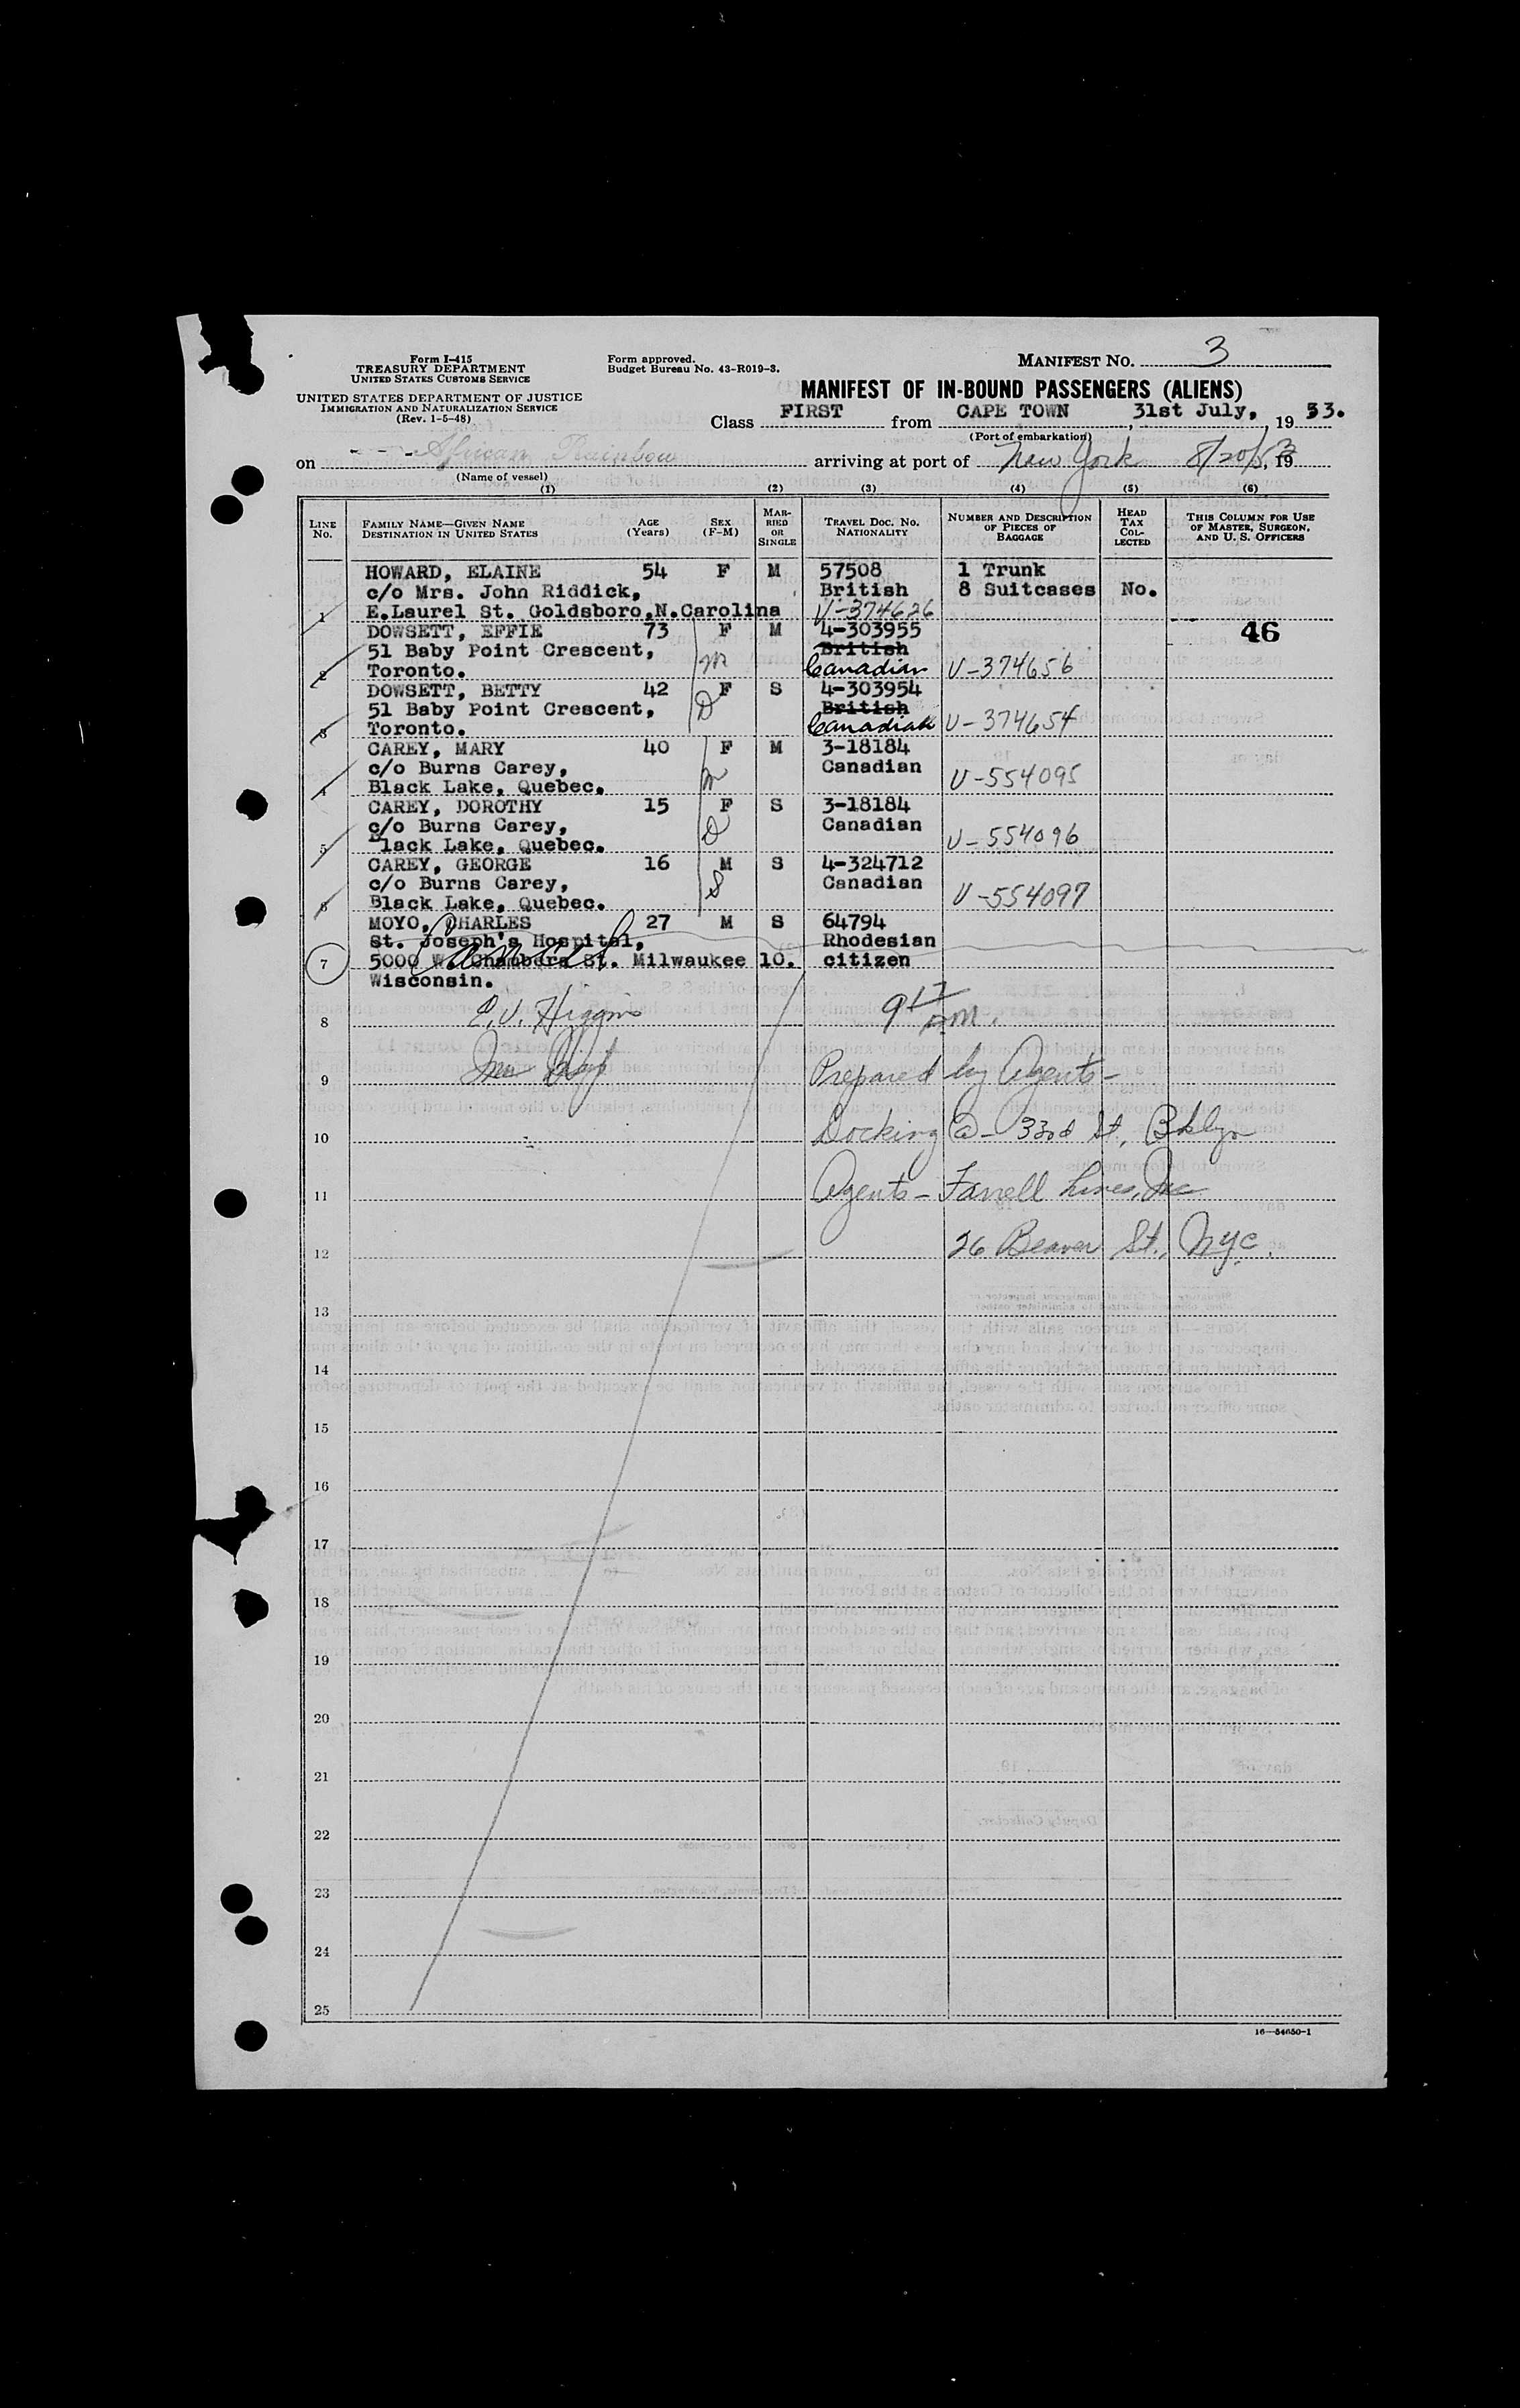 Form I-415
TREASURY DEPARTMENT
UNITED STATES CUSTOMS SERVICE
UNITED STATES DEPARTMENT OF JUSTICE
IMMIGRATION AND NATURALIZATION SERVICE
(Rev. 1-5-48)
Form approved.
Budget Bureau No. 43-R019-3.
MANIFEST NO. 3
MANIFEST OF IN-BOUND PASSENGERS (ALIENS)
Class FIRST from CAPE TOWN, 31st July, 19 53.
(Port of embarkation)
on African Rainbow arriving at port of New York 8/20/53, 19
(Name of vessel)
(1) (2) (3) (4) (5) (6)
LINE NO. FAMILY NAME—GIVEN NAME DESTINATION IN UNITED STATES AGE (Years) SEX (F-M) MARRIED OR SINGLE TRAVEL DOC. NO. NATIONALITY NUMBER AND DESCRIPTION OF PIECES OF BAGGAGE HEAD TAX COLLECTED THIS COLUMN FOR USE OF MASTER, SURGEON, AND U. S. OFFICERS
HOWARD, ELAINE 54 F M 57508 1 Trunk
c/o Mrs. John Riddick, British 8 Suitcases No.
1 E.Laurel St. Goldsboro,N.Carolina V-374626
DOWSETT, EFFIE 73 F M 4-303955 46
51 Baby Point Crescent, m British
2 Toronto. Canadian V-374656
DOWSETT, BETTY 42 F S 4-303954
51 Baby Point Crescent, D British
3 Toronto. Canadian V-374654
CAREY, MARY 40 F M 3-18184
c/o Burns Carey, m Canadian
4 Black Lake, Quebec. V-554095
CAREY, DOROTHY 15 F S 3-18184
c/o Burns Carey, D Canadian
5 Black Lake, Quebec. V-554096
CAREY, GEORGE 16 M S 4-324712
c/o Burns Carey, S Canadian
6 Black Lake, Quebec. V-554097
MOYO, CHARLES 27 M S 64794
St. Joseph's Hospital, Rhodesian
7 5000 W. Chambers St. Milwaukee 10. citizen
Wisconsin.
8 E.V. Higgins 9 AM.
9 Prepared by Agents-
10 Docking @- 33rd St, Bklyn
11 Agents- Farrell Lines, Inc
12 26 Beaver St., NYC.
13
14
15
16
17
18
19
20
21
22
23
24
25
16—54650-1